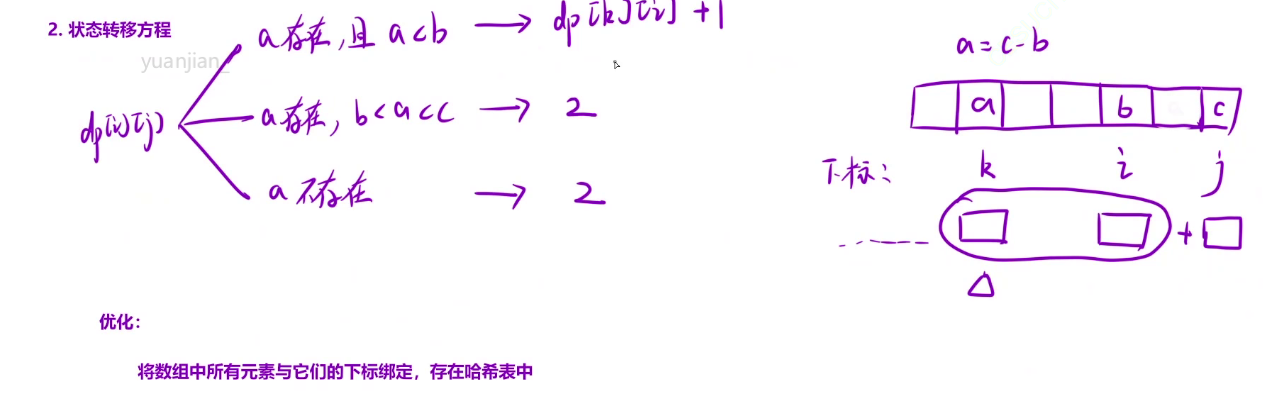 2. 状态转移方程
yuanjian_
dp[i][j]
a存在,且 a<b → dp[k][i] +1
a存在, b<a<c → 2
a不存在 → 2
a=c-b
a b c
下标: k i j
+
△
优化:
将数组中所有元素与它们的下标绑定，存在哈希表中